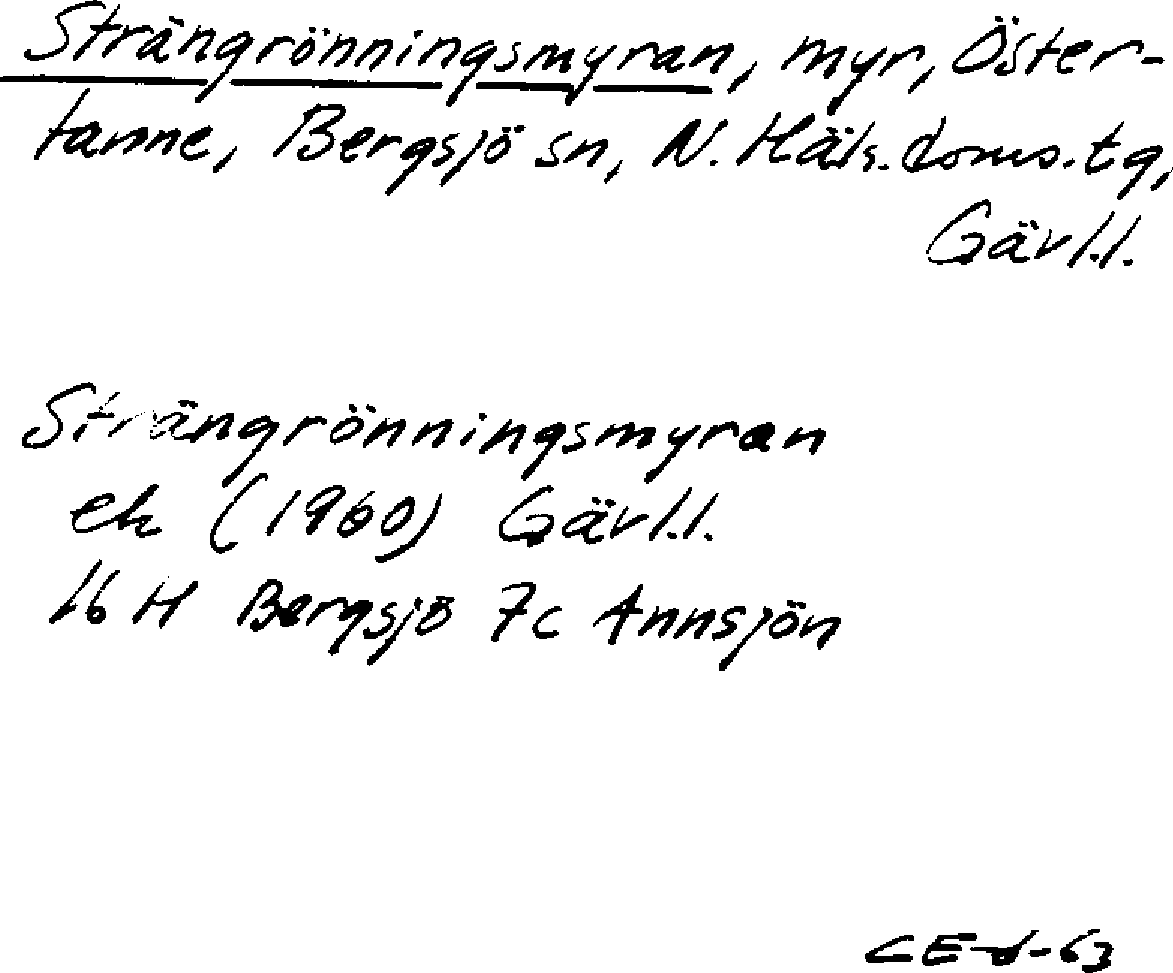 Strängrönningsmyran, myr, Öster-
tanne, Bergsjö sn, N. Häls. doms. tg,
Gävl.l.
Strängrönningsmyran
ek (1960) Gävl.l.
16 H Bergsjö 7c Annsjön